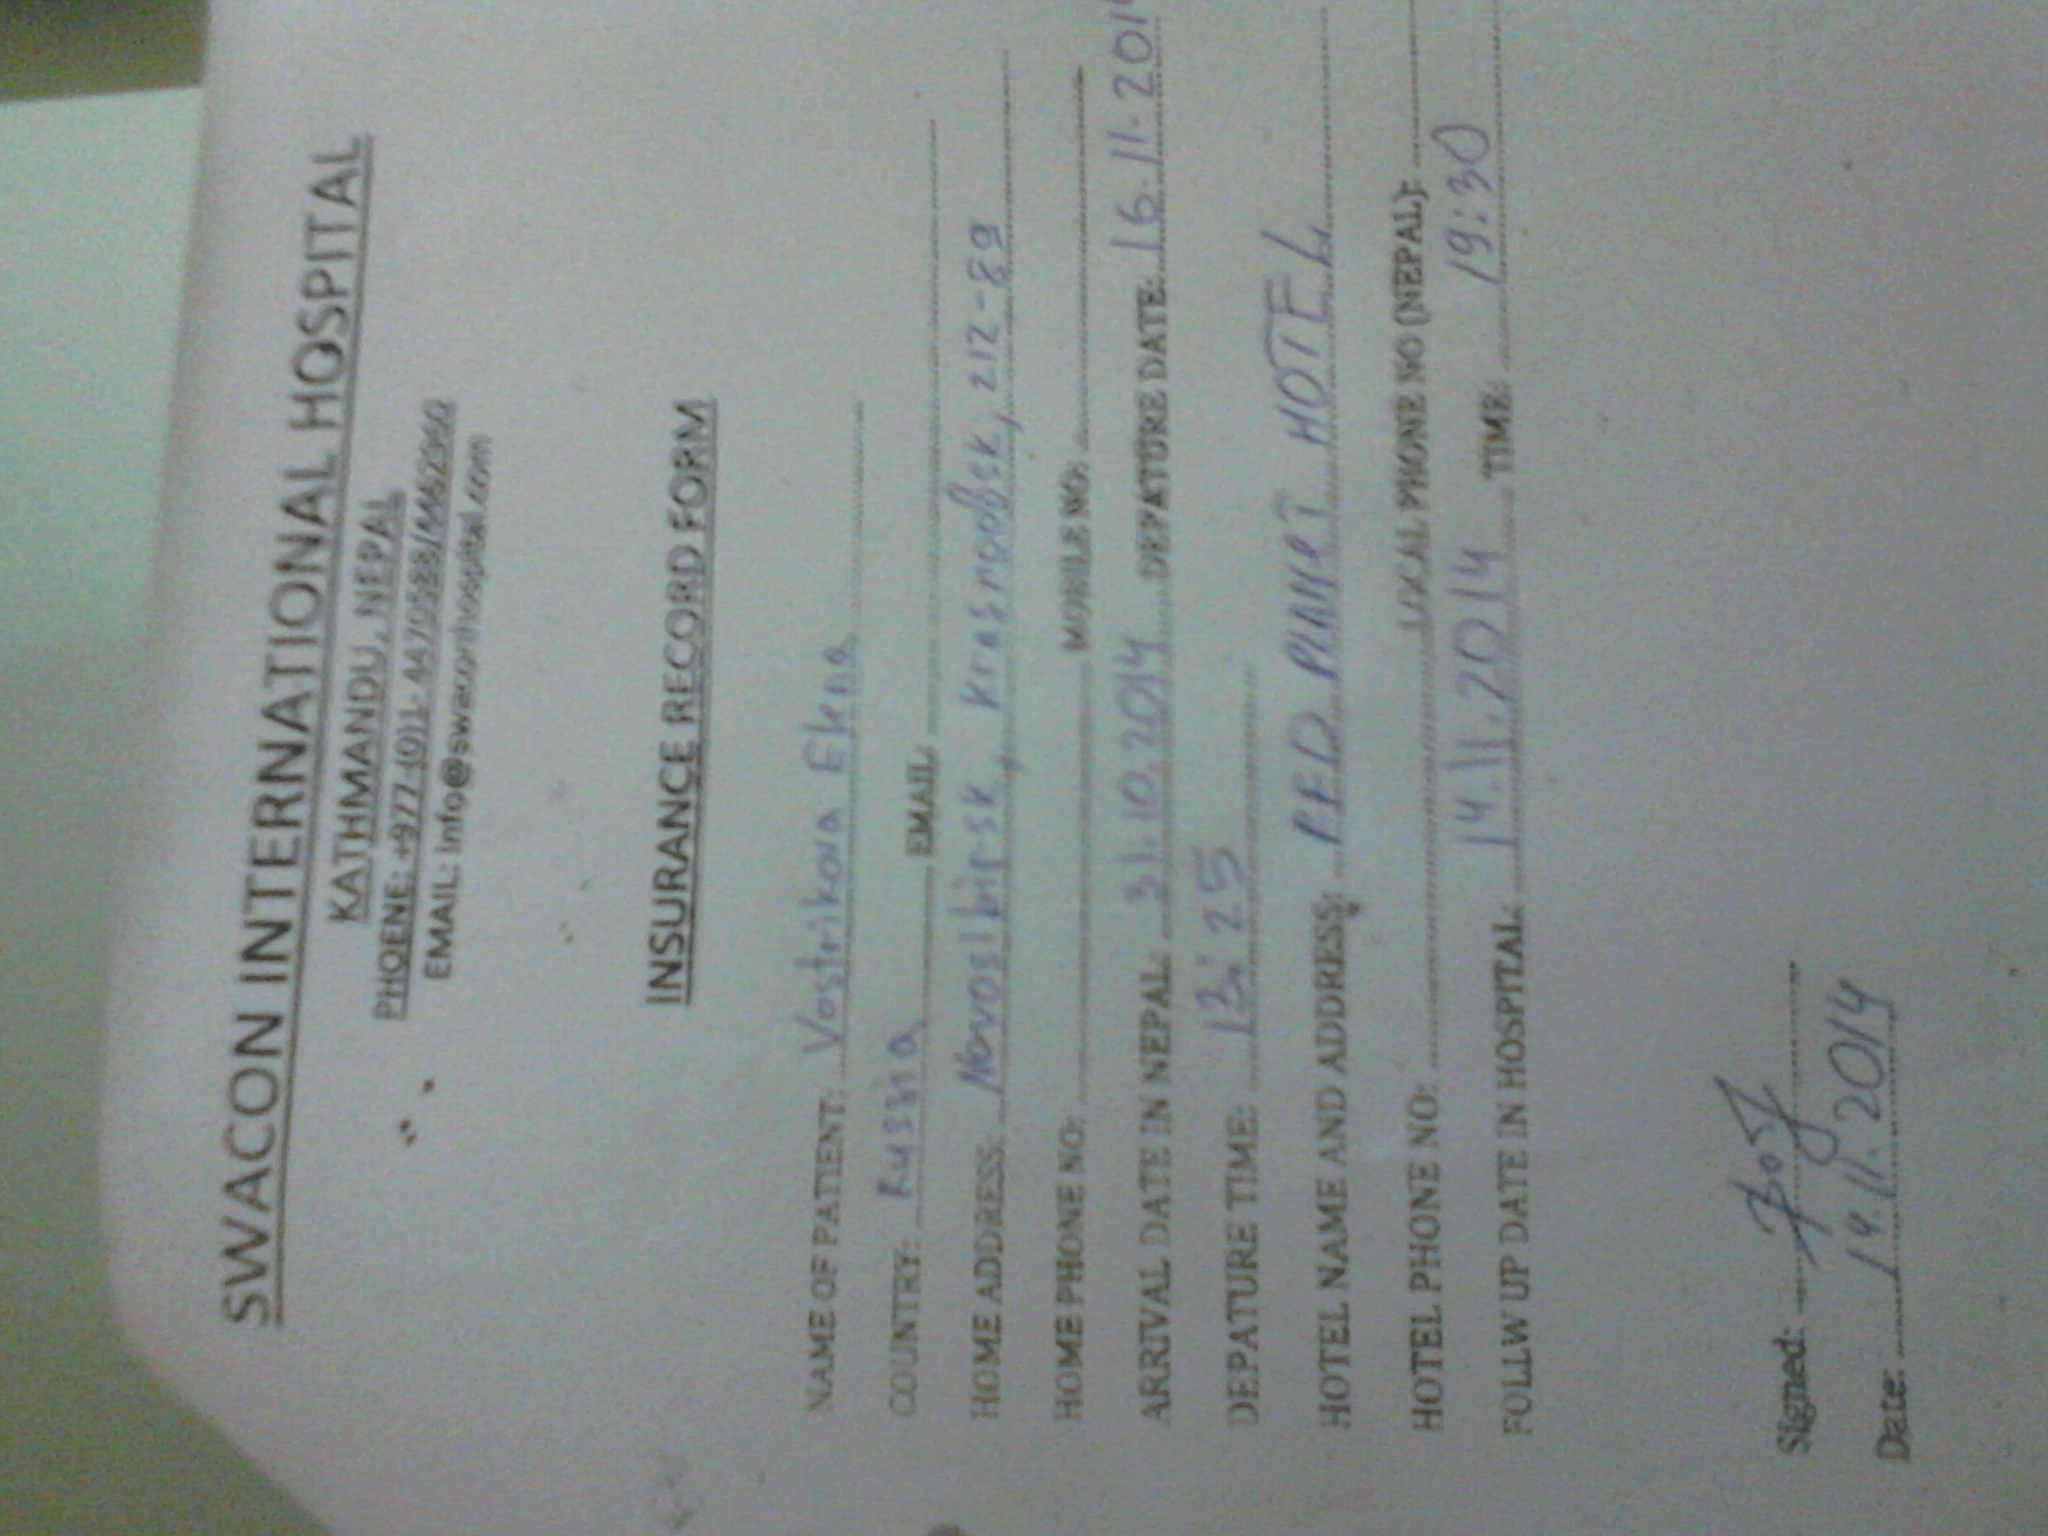 SWACON INTERNATIONAL HOSPITAL
KATHMANDU, NEPAL
PHOENE: +977-(0)1- 4470588/4462960
EMAIL: info@swaconhospital.com
INSURANCE RECORD FORM
NAME OF PATIENT: Vostrikova Elena
COUNTRY: Russia EMAIL:
HOME ADDRESS: Novosibirsk, 212-89
HOME PHONE NO: MOBILE NO:
ARRIVAL DATE IN NEPAL: 31.10.2014 DEPATURE DATE: 16.11.2014
DEPATURE TIME: 13:25
HOTEL NAME AND ADDRESS: RED PLANET HOTEL
HOTEL PHONE NO: LOCAL PHONE NO (NEPAL):
FOLLW UP DATE IN HOSPITAL: 14.11.2014 TIME: 19:30
Signed:
Date: 14.11.2014